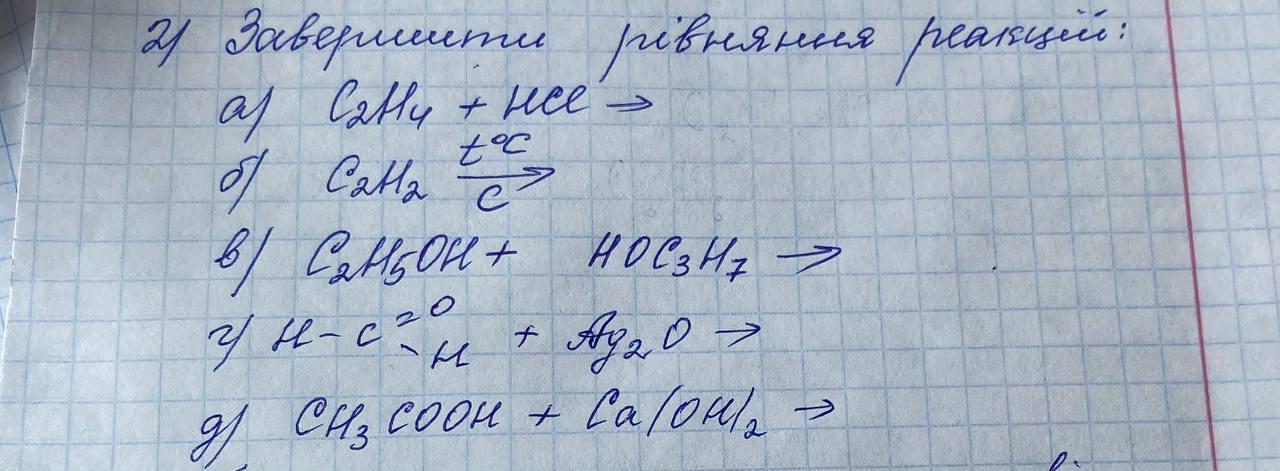 2) Завершити рівняння реакцій:
а) C₂H₄ + HCl →
б) C₂H₂ t°C→ C
в) C₂H₅OH + HOC₃H₇ →
г) H–C=O –H + Ag₂O →
д) CH₃COOH + Ca(OH)₂ →